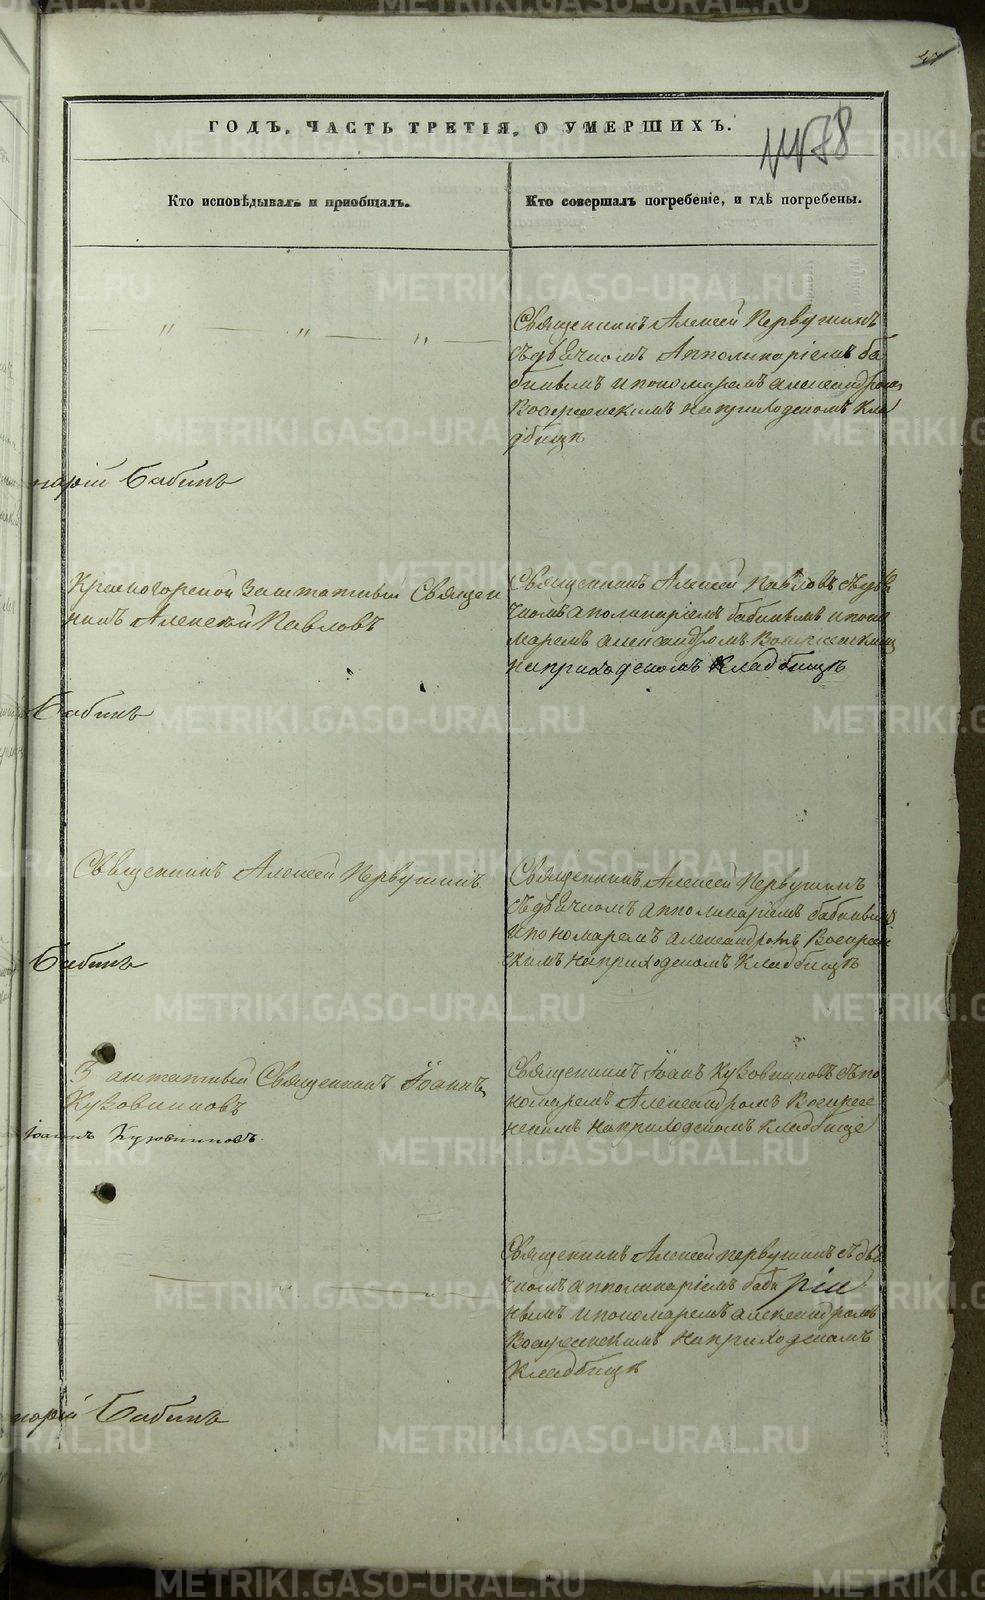 ГОДЪ, ЧАСТЬ ТРЕТІЯ, О УМЕРШИХЪ.
Кто исповѣдывалъ и пріобщалъ.
Кто совершалъ погребеніе, и гдѣ погребены.
Священникъ Алексѣй Первушинъ
съ дьячкомъ Апполинаріемъ Ба-
бинымъ и пономаремъ Александромъ
Воскресенскимъ на приходскомъ кла
дбищѣ
нарій Бабинъ
Красногорской Заштатный Священ
никъ Алексѣй Павловъ
Священникъ Алексѣй Павловъ съ дья
чкомъ Аполинаріемъ Бабинымъ и поно
маремъ Александромъ Воскресенскимъ
на приходскомъ Кладбищѣ
Бабинъ
Священникъ Алексѣй Первушинъ
Священникъ Алексѣй Первушинъ
съ дьячкомъ Апполинаріемъ Бабинымъ
и пономаремъ Александромъ Воскресен
скимъ на приходскомъ Кладбищѣ
Бабинъ
Заштатный Священникъ Іоаннъ
Кузовниковъ
Священникъ Іоанъ Кузовниковъ съ по
номаремъ Александромъ Воскресе
нскимъ на приходскомъ Кладбище
Іоаннъ Кузовниковъ.
Священникъ Алексѣй Первушинъ съ дья
чкомъ Апполинаріемъ Баби
нымъ и пономаремъ Александромъ
Воскресенскимъ на приходскомъ
Кладбищѣ
нарій Бабинъ
METRIKI.GASO-URAL.RU